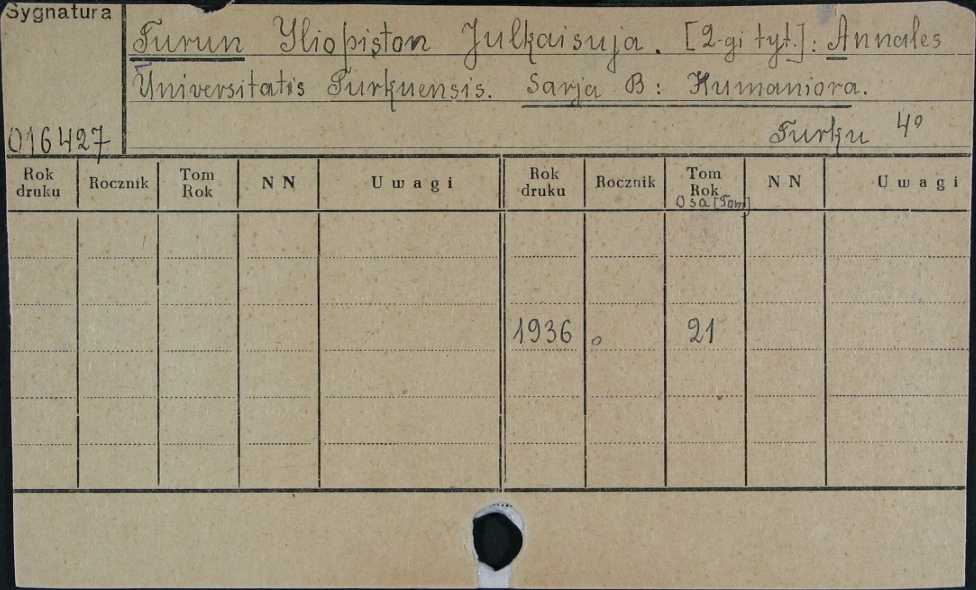 Sygnatura
Turun Yliopiston Julkaisuja. [2-gi tyt.]: Annales
Universitatis Turkuensis. Sarja B: Humaniora.
016427
Turku 4°
Rok druku Rocznik Tom Rok NN Uwagi Rok druku Rocznik Tom Rok NN Uwagi
Osa [Tom]
1936 21